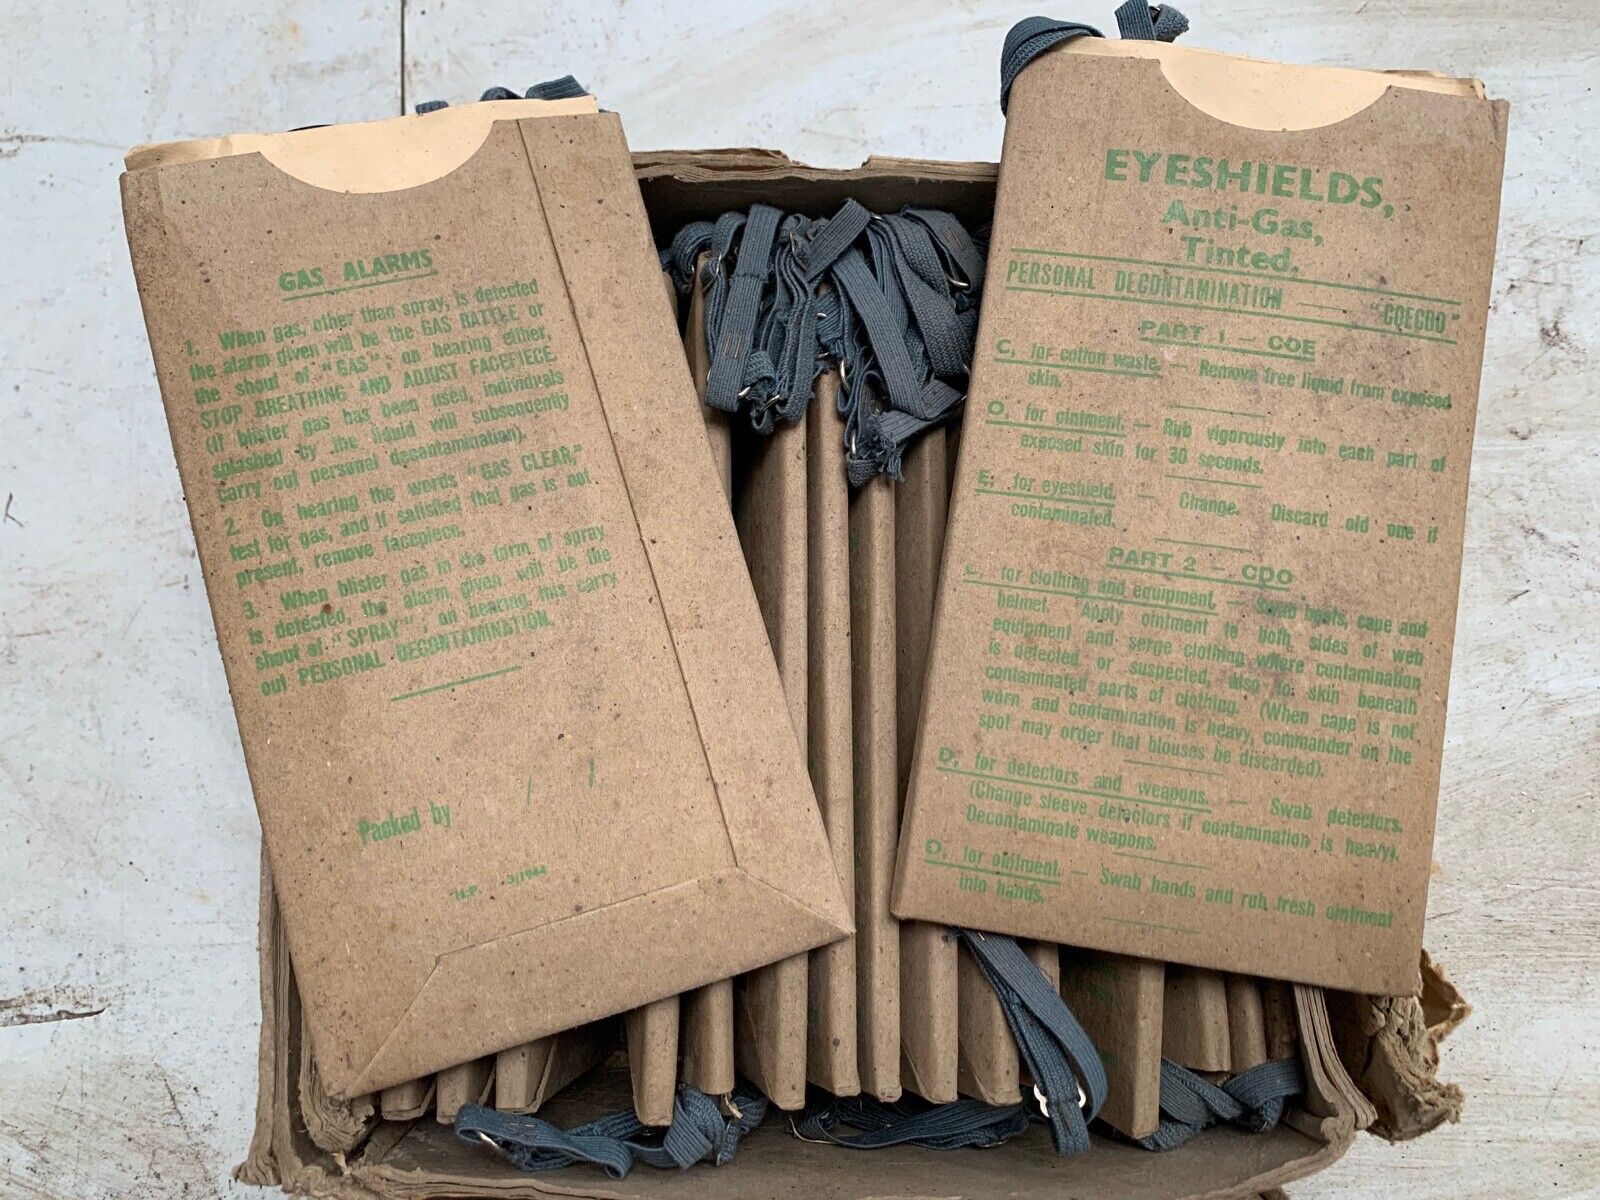 GAS ALARMS
1. When gas, other than spray, is detected
the alarm given will be the GAS RATTLE or
the shout of "GAS"; on hearing either,
STOP BREATHING AND ADJUST FACEPIECE.
(If blister gas has been used, individuals
splashed by the liquid will subsequently
carry out personal decontamination).
2. On hearing the words "GAS CLEAR,"
test for gas, and if satisfied that gas is not
present, remove facepiece.
3. When blister gas in the form of spray
is detected, the alarm given will be the
shout of "SPRAY"; on hearing this carry
out PERSONAL DECONTAMINATION.
/ /
Packed by
H.P. 3/1944
EYESHIELDS,
Anti-Gas,
Tinted.
PERSONAL DECONTAMINATION — "COECDO"
PART 1 — COE
C, for cotton waste. — Remove free liquid from exposed
skin.
O, for ointment. — Rub vigorously into each part of
exposed skin for 30 seconds.
E, for eyeshield. — Change. Discard old one if
contaminated.
PART 2 — CDO
C, for clothing and equipment. — Swab boots, cape and
helmet. Apply ointment to both sides of web
equipment and serge clothing where contamination
is detected or suspected, also to skin beneath
contaminated parts of clothing. (When cape is not
worn and contamination is heavy, commander on the
spot may order that blouses be discarded).
D, for detectors and weapons. — Swab detectors.
(Change sleeve detectors if contamination is heavy).
Decontaminate weapons.
O, for ointment. — Swab hands and rub fresh ointment
into hands.